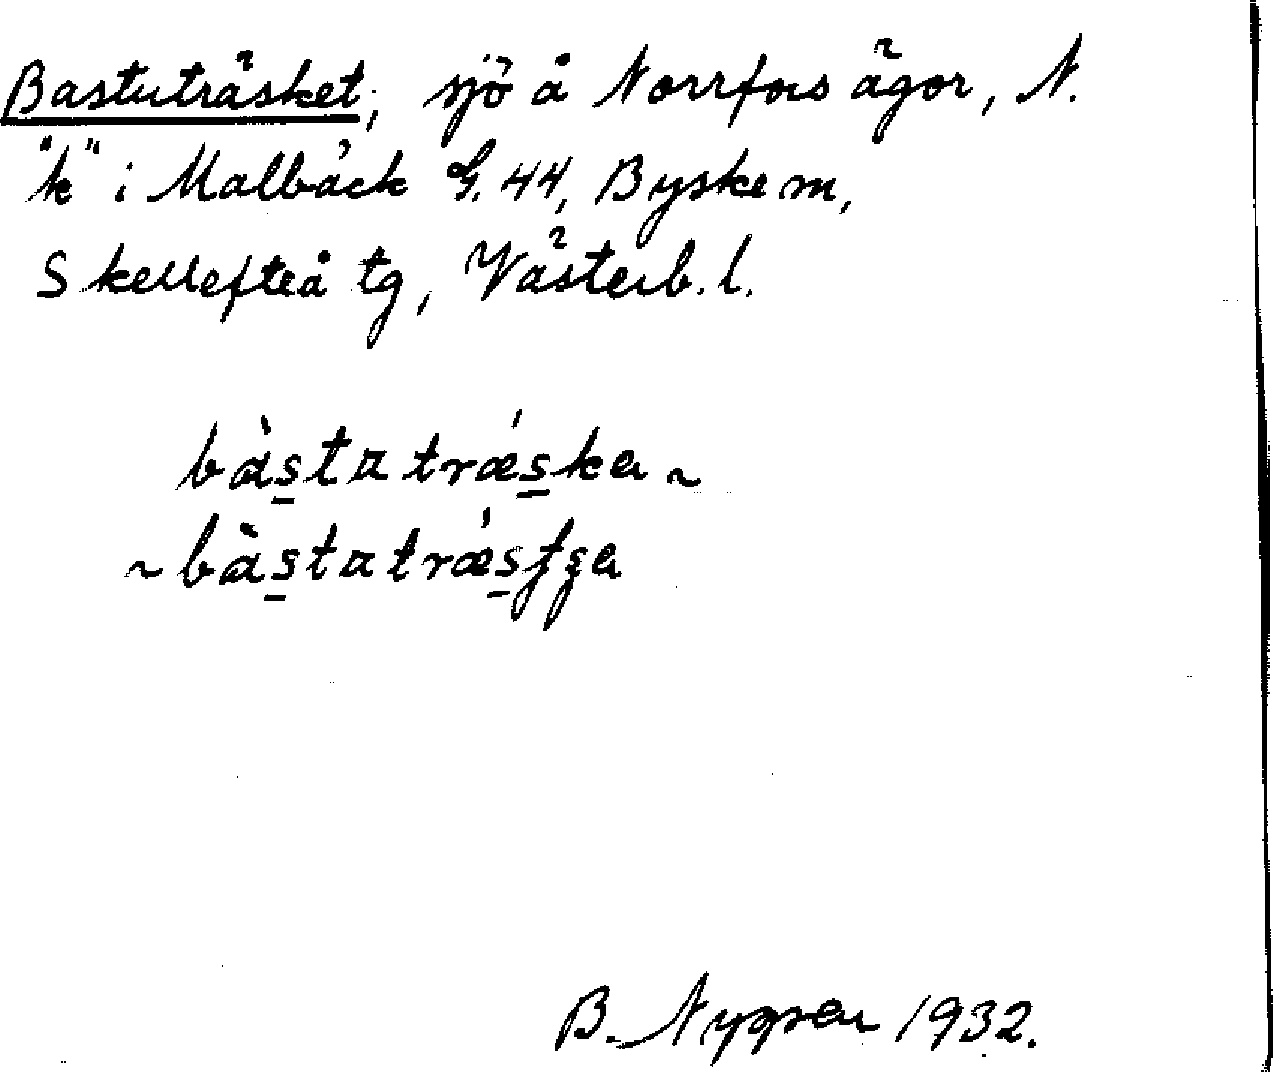 Bastuträsket, sjö å Norrfors ägor, N.
"k" i Malbäck G. 44, Byske m,
Skellefteå tg, Västerb. l.
bàstatrǽska ~
~ bàsta trǽsʃʒa
B. Nyggren 1932.